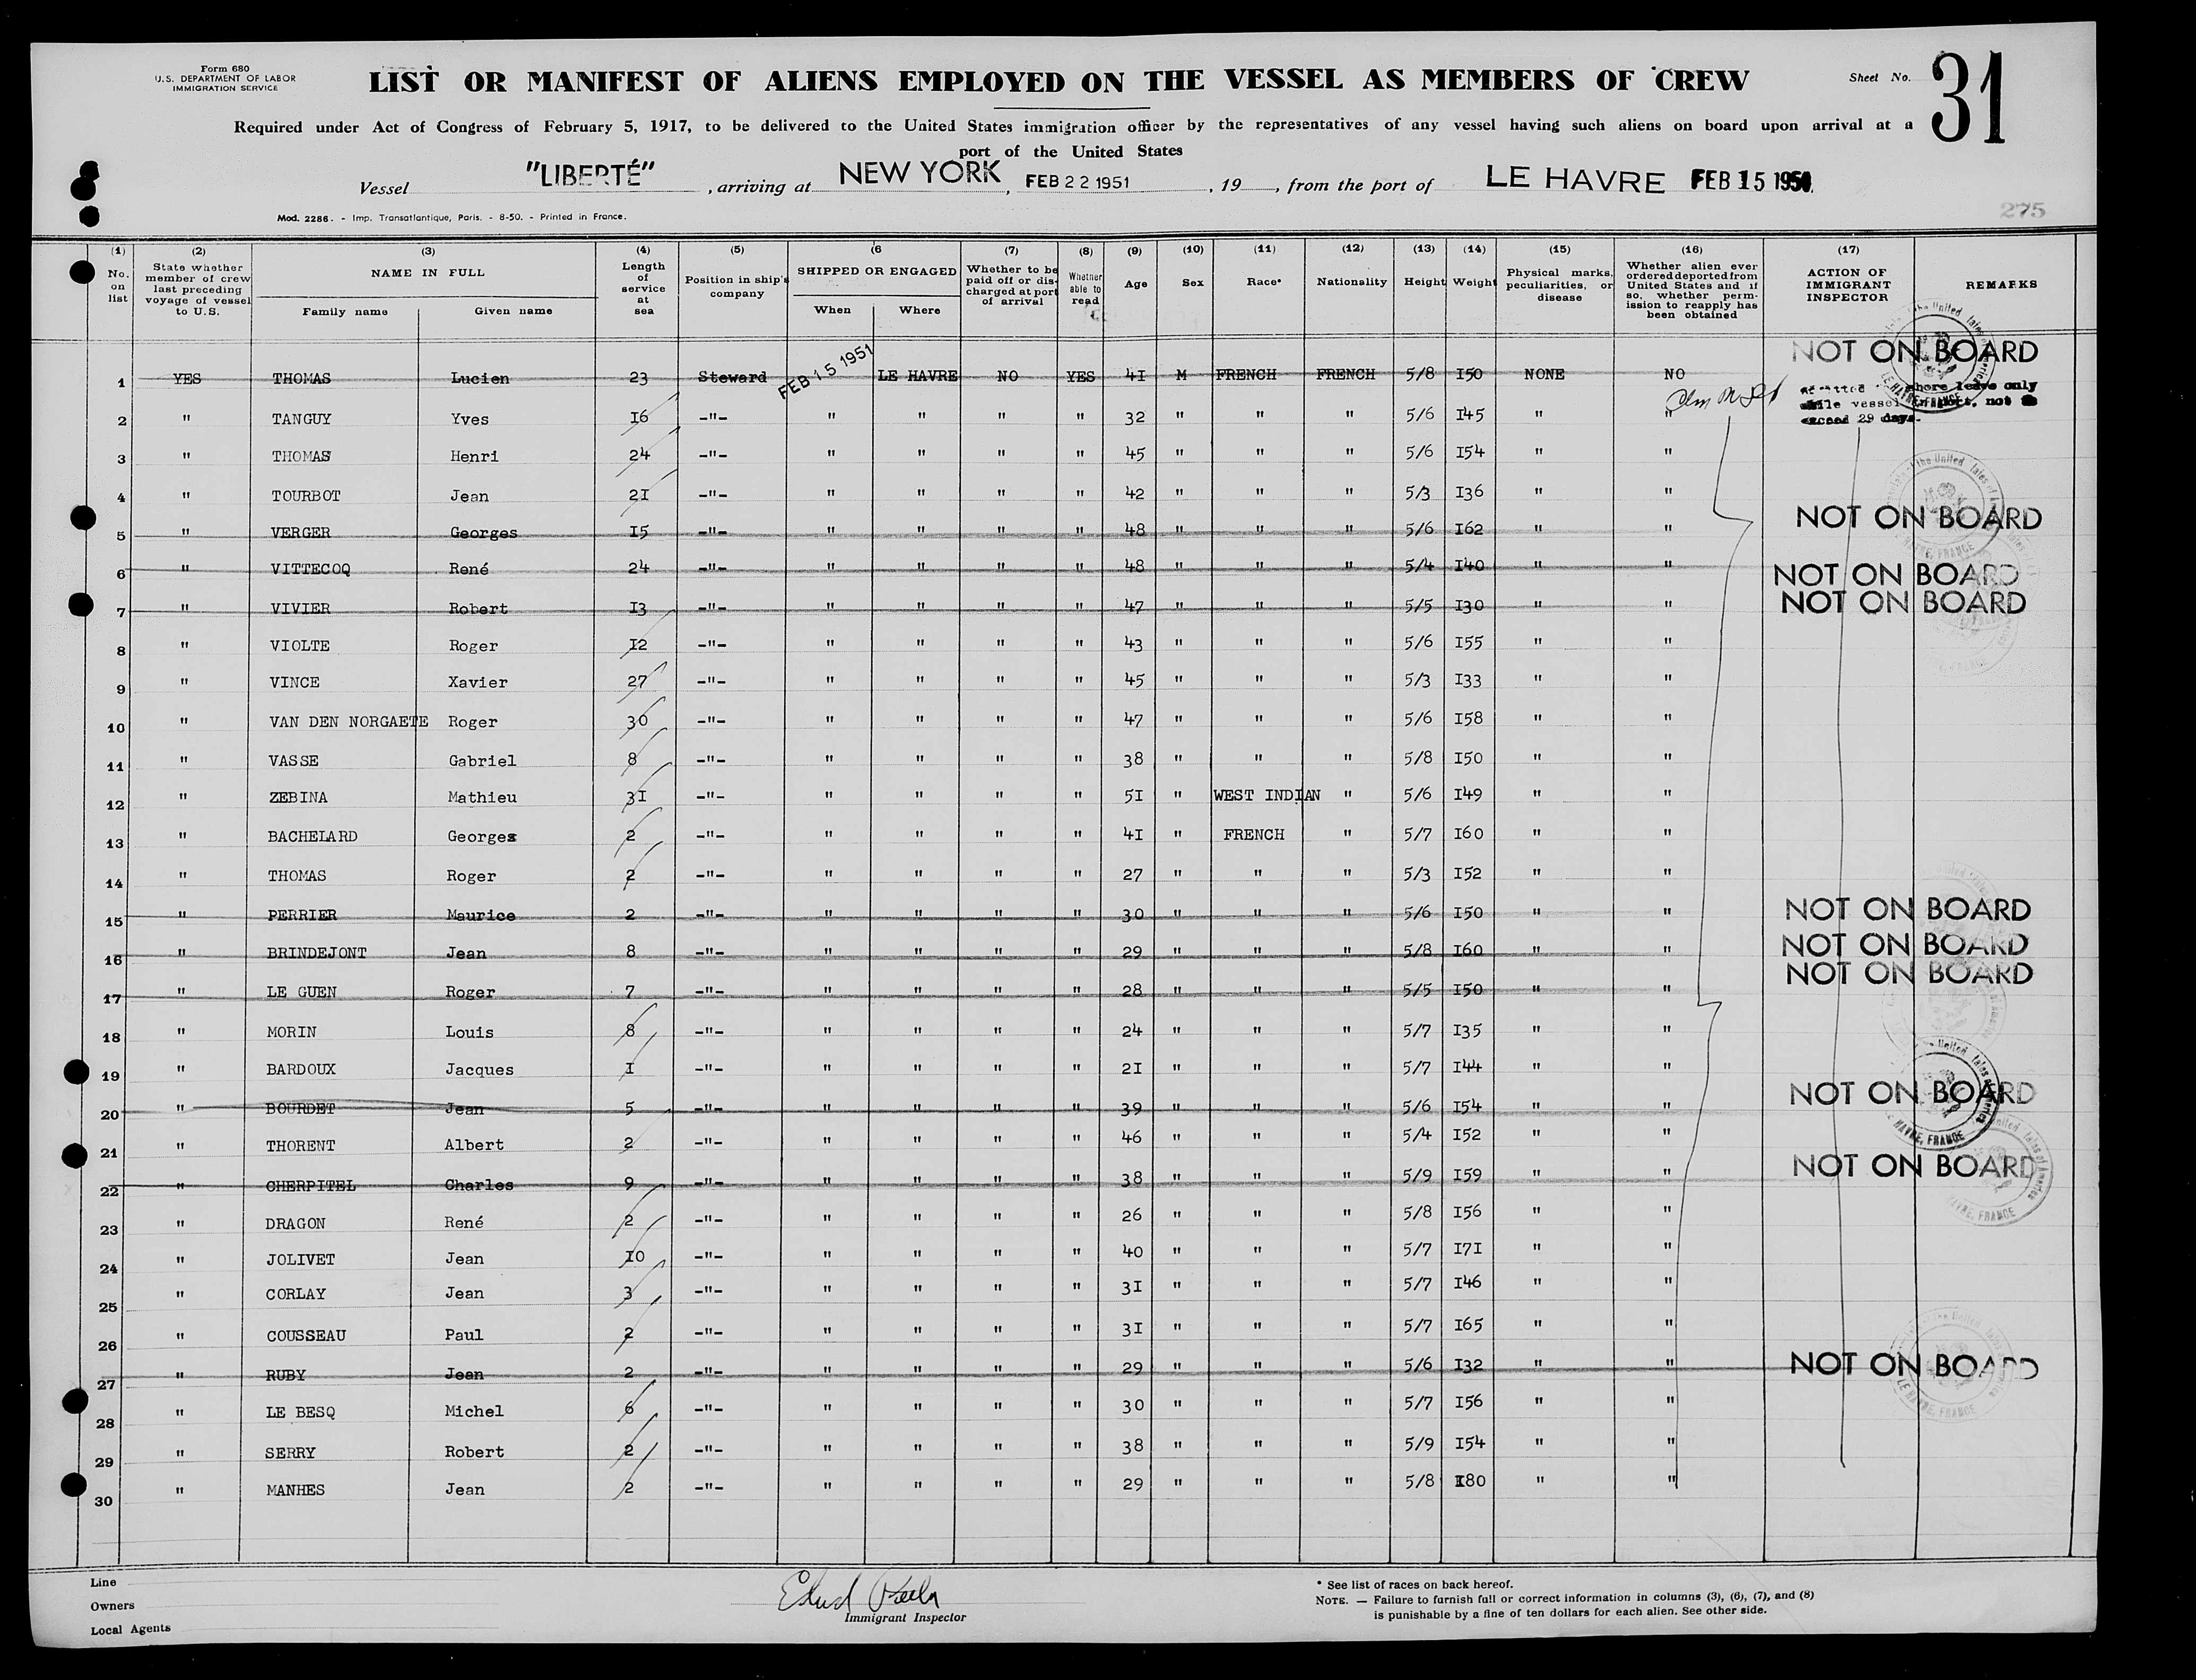 Form 680
U.S. DEPARTMENT OF LABOR
IMMIGRATION SERVICE
LIST OR MANIFEST OF ALIENS EMPLOYED ON THE VESSEL AS MEMBERS OF CREW
Sheet No. 31
Required under Act of Congress of February 5, 1917, to be delivered to the United States immigration officer by the representatives of any vessel having such aliens on board upon arrival at a
port of the United States
Vessel "LIBERTÉ", arriving at NEW YORK, FEB 22 1951, 19, from the port of LE HAVRE FEB 15 1951
Mod. 2286. - Imp. Transatlantique, Paris. - 8-50. - Printed in France.
275
(1) (2) (3) (4) (5) (6 (7) (8) (9) (10) (11) (12) (13) (14) (15) (16) (17)
No. on list
State whether member of crew last preceding voyage of vessel to U.S.
NAME IN FULL
Family name Given name
Length of service at sea
Position in ship's company
SHIPPED OR ENGAGED
When Where
Whether to be paid off or discharged at port of arrival
Whether able to read
Age
Sex
Race*
Nationality
Height
Weight
Physical marks, peculiarities, or disease
Whether alien ever ordered deported from United States and if so, whether permission to reapply has been obtained
ACTION OF IMMIGRANT INSPECTOR
REMARKS
1 YES THOMAS Lucien 23 Steward FEB 15 1951 LE HAVRE NO YES 41 M FRENCH FRENCH 5/8 I50 NONE NO NOT ON BOARD
shore leave only
while vessel in port, not to
exceed 29 days.
2 " TANGUY Yves 16 -"- " " " " 32 " " " 5/6 I45 " "
3 " THOMAS Henri 24 -"- " " " " 45 " " " 5/6 I54 " "
4 " TOURBOT Jean 2I -"- " " " " 42 " " " 5/3 I36 " "
5 " VERGER Georges I5 -"- " " " " 48 " " " 5/6 I62 " " NOT ON BOARD
6 " VITTECOQ René 24 -"- " " " " 48 " " " 5/4 I40 " " NOT ON BOARD
7 " VIVIER Robert I3 -"- " " " " 47 " " " 5/5 I30 " " NOT ON BOARD
8 " VIOLTE Roger I2 -"- " " " " 43 " " " 5/6 I55 " "
9 " VINCE Xavier 27 -"- " " " " 45 " " " 5/3 I33 " "
10 " VAN DEN NORGAETE Roger 30 -"- " " " " 47 " " " 5/6 I58 " "
11 " VASSE Gabriel 8 -"- " " " " 38 " " " 5/8 I50 " "
12 " ZEBINA Mathieu 3I -"- " " " " 5I " WEST INDIAN " 5/6 I49 " "
13 " BACHELARD Georges 2 -"- " " " " 4I " FRENCH " 5/7 I60 " "
14 " THOMAS Roger 2 -"- " " " " 27 " " " 5/3 I52 " "
15 " PERRIER Maurice 2 -"- " " " " 30 " " " 5/6 I50 " " NOT ON BOARD
16 " BRINDEJONT Jean 8 -"- " " " " 29 " " " 5/8 I60 " " NOT ON BOARD
17 " LE GUEN Roger 7 -"- " " " " 28 " " " 5/5 I50 " " NOT ON BOARD
18 " MORIN Louis 8 -"- " " " " 24 " " " 5/7 I35 " "
19 " BARDOUX Jacques I -"- " " " " 2I " " " 5/7 I44 " "
20 " BOURDET Jean 5 -"- " " " " 39 " " " 5/6 I54 " " NOT ON BOARD
21 " THORENT Albert 2 -"- " " " " 46 " " " 5/4 I52 " "
22 " CHERPITEL Charles 9 -"- " " " " 38 " " " 5/9 I59 " " NOT ON BOARD
23 " DRAGON René 2 -"- " " " " 26 " " " 5/8 I56 " "
24 " JOLIVET Jean IO -"- " " " " 40 " " " 5/7 I7I " "
25 " CORLAY Jean 3 -"- " " " " 3I " " " 5/7 I46 " "
26 " COUSSEAU Paul 2 -"- " " " " 3I " " " 5/7 I65 " "
27 " RUBY Jean 2 -"- " " " " 29 " " " 5/6 I32 " " NOT ON BOARD
28 " LE BESQ Michel 6 -"- " " " " 30 " " " 5/7 I56 " "
29 " SERRY Robert 2 -"- " " " " 38 " " " 5/9 I54 " "
30 " MANHES Jean 2 -"- " " " " 29 " " " 5/8 I80 " "
LE HAVRE, FRANCE
Line
Owners
Local Agents
Immigrant Inspector
* See list of races on back hereof.
NOTE. — Failure to furnish full or correct information in columns (3), (6), (7), and (8)
is punishable by a fine of ten dollars for each alien. See other side.